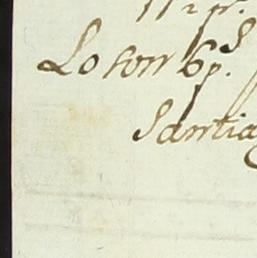 Lo son 6p.^s
Santia